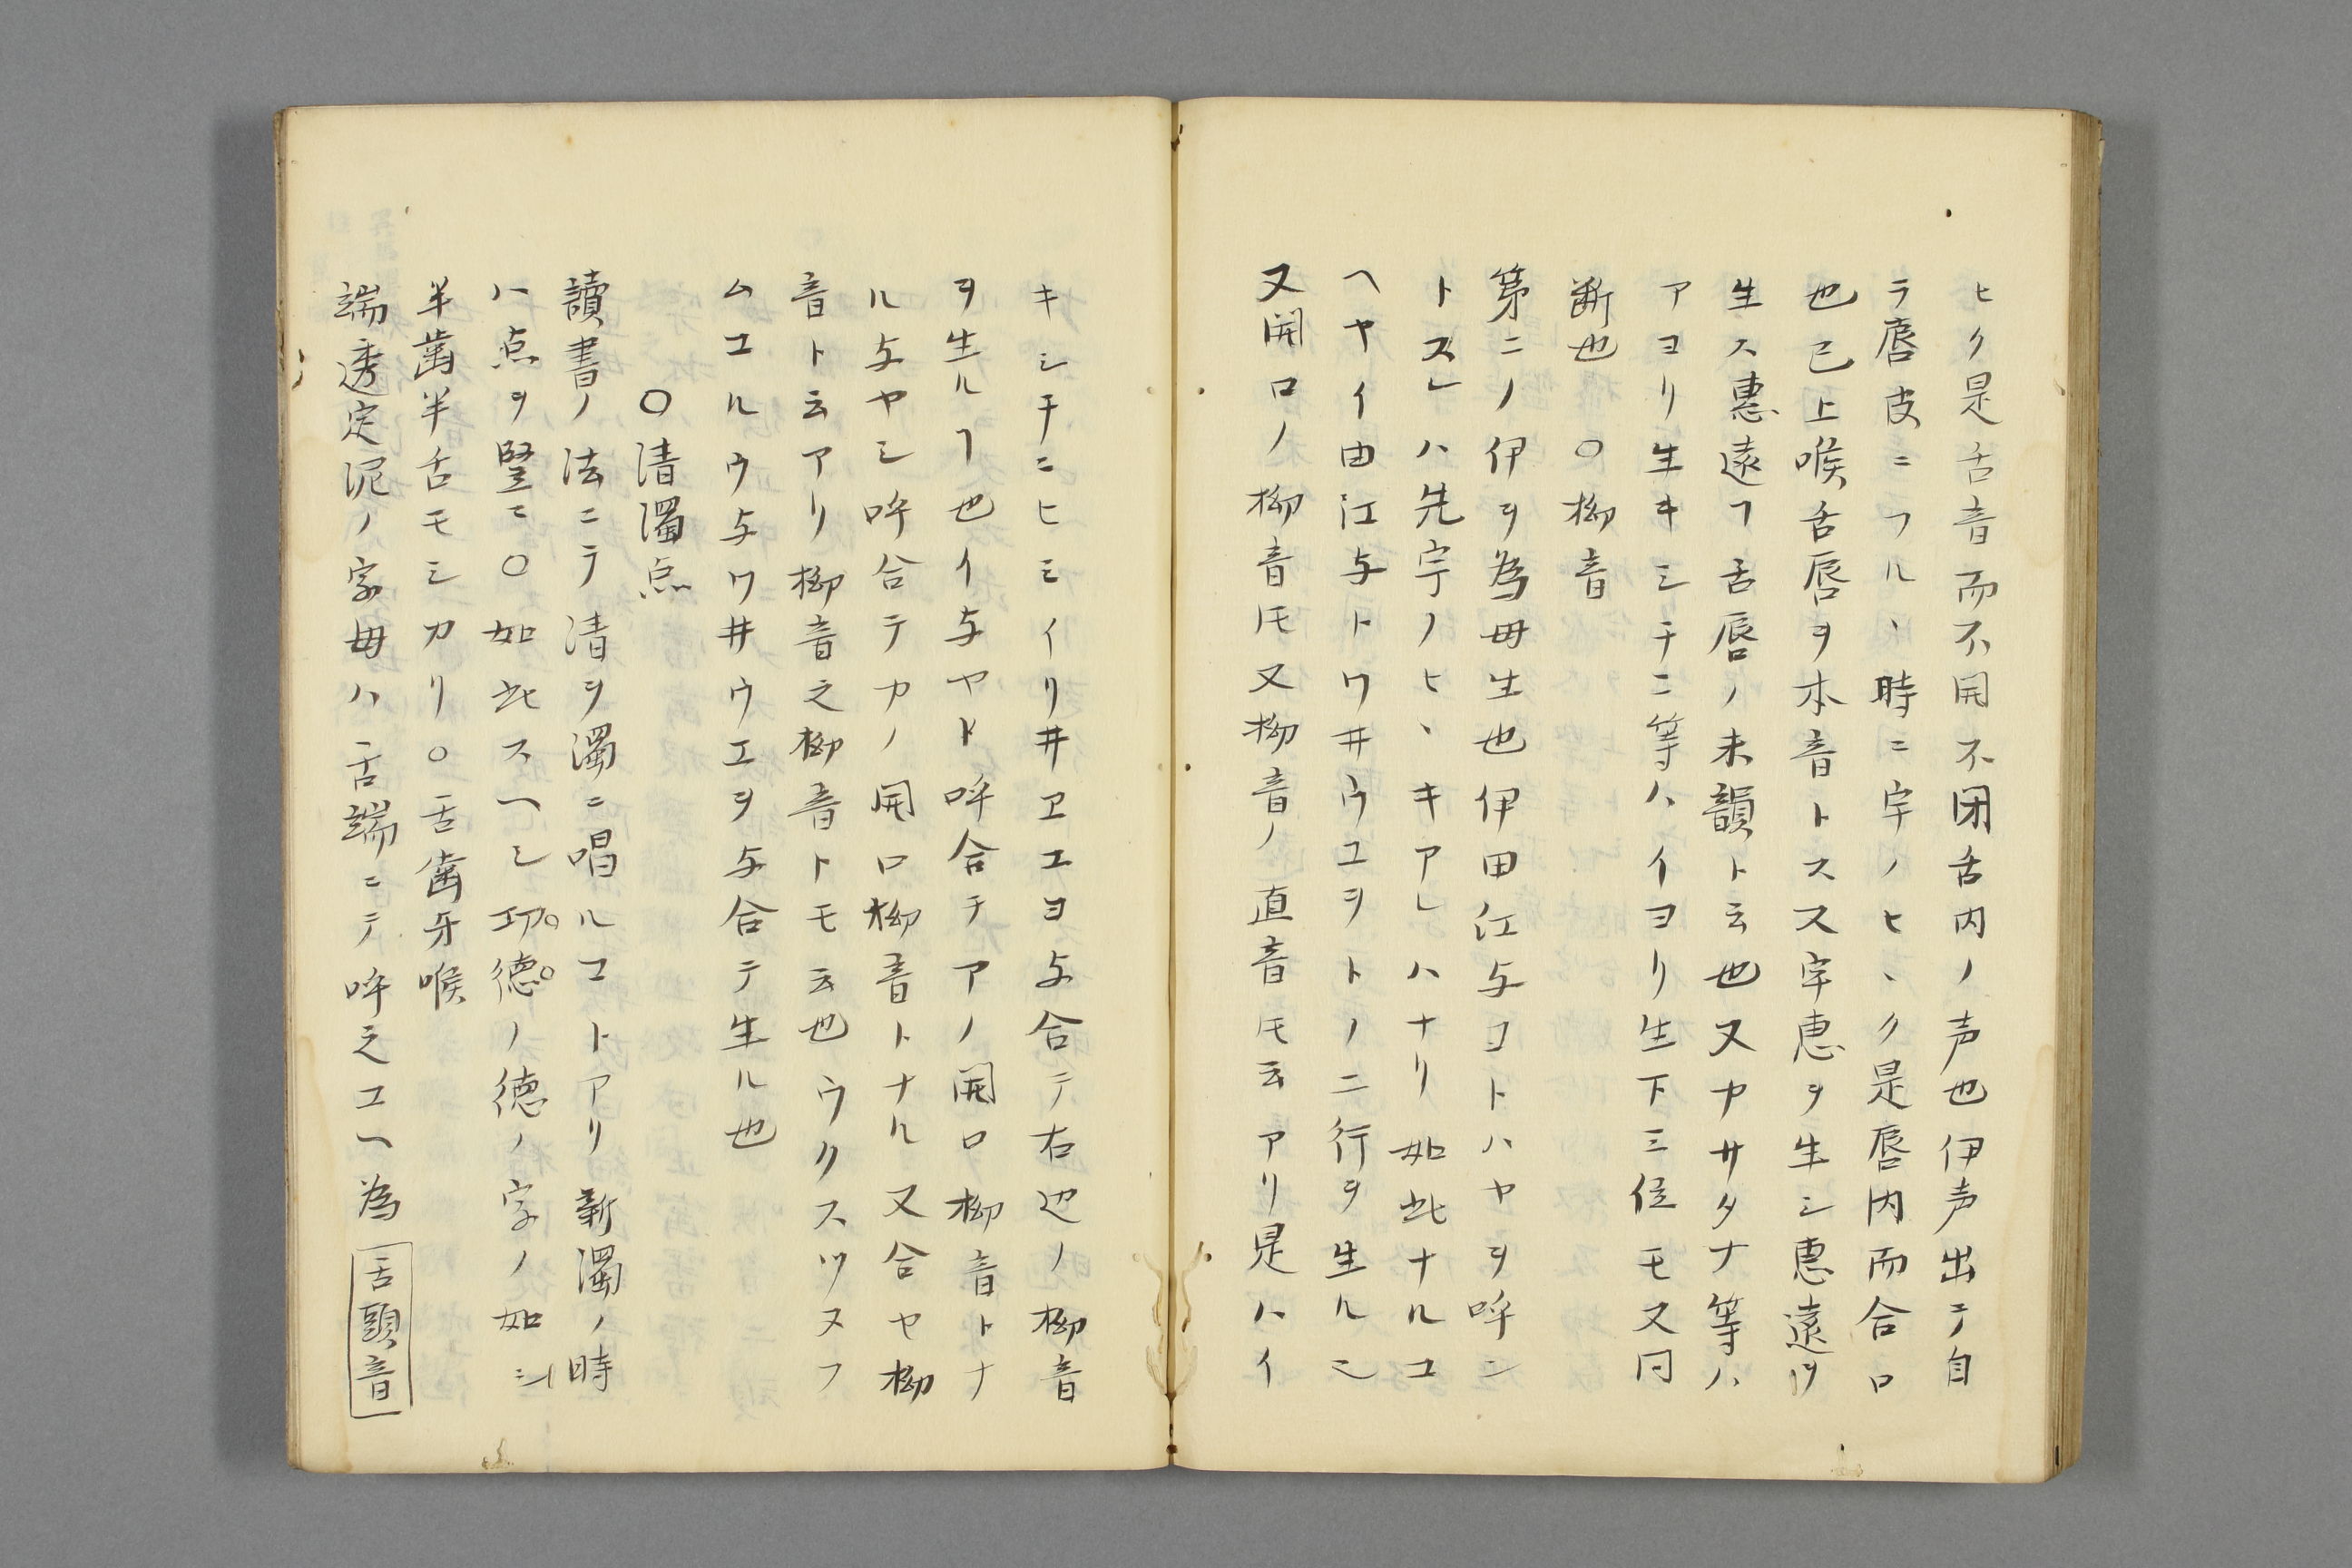 ヒク是舌音而不開不閉舌内ノ声也伊声出テ自
ラ唇皮ニフルヽ時ニ宇ノヒヽク是唇内而合口
也已上喉舌唇ヲ本音トスス宇恵ヲ生シ恵遠ヲ
生ス恵遠フ舌唇ノ末韻ト云也又ヤサタナ等ハ
アヨリ生キシチニ等ハイヨリ生下三位モ又同
断也 〇拗音
第二ノ伊ヲ為母生也伊田江与コトハヤヲ呼ン
トスレハ先宇ノヒヽキアレハナリ如此ナルユ
ヘヤイ由江与トワ井ウユヲトノ二行ヲ生ルニ
又開口ノ拗音トモ又拗音ノ直音トモ云アリ是ハイ
キシチニヒミイリ井ヱエヨ与合テ右辺ノ拗音
ヲ生ルフ也イ与ヤト呼合テアノ開口拗音トナ
ル与ヤシ呼合テカノ開口拗音トナル又合セ拗
音ト云アリ拗音之拗音トモ云也ウクスツヌフ
ムユルウ与ワ井ウエヲ与合テ生ル也
〇清濁点
讀書ノ法ニテ清ヲ濁ニ唱ルコトアリ新濁ノ時
ハ点ヲ竪ニ〇如此スヘシ功。徳。ノ徳ノ字ノ如シ
半歯半舌モシカリ〇舌歯牙喉
端透定泥ノ字母ハ舌端ニテ呼之ユヘ為舌頭音